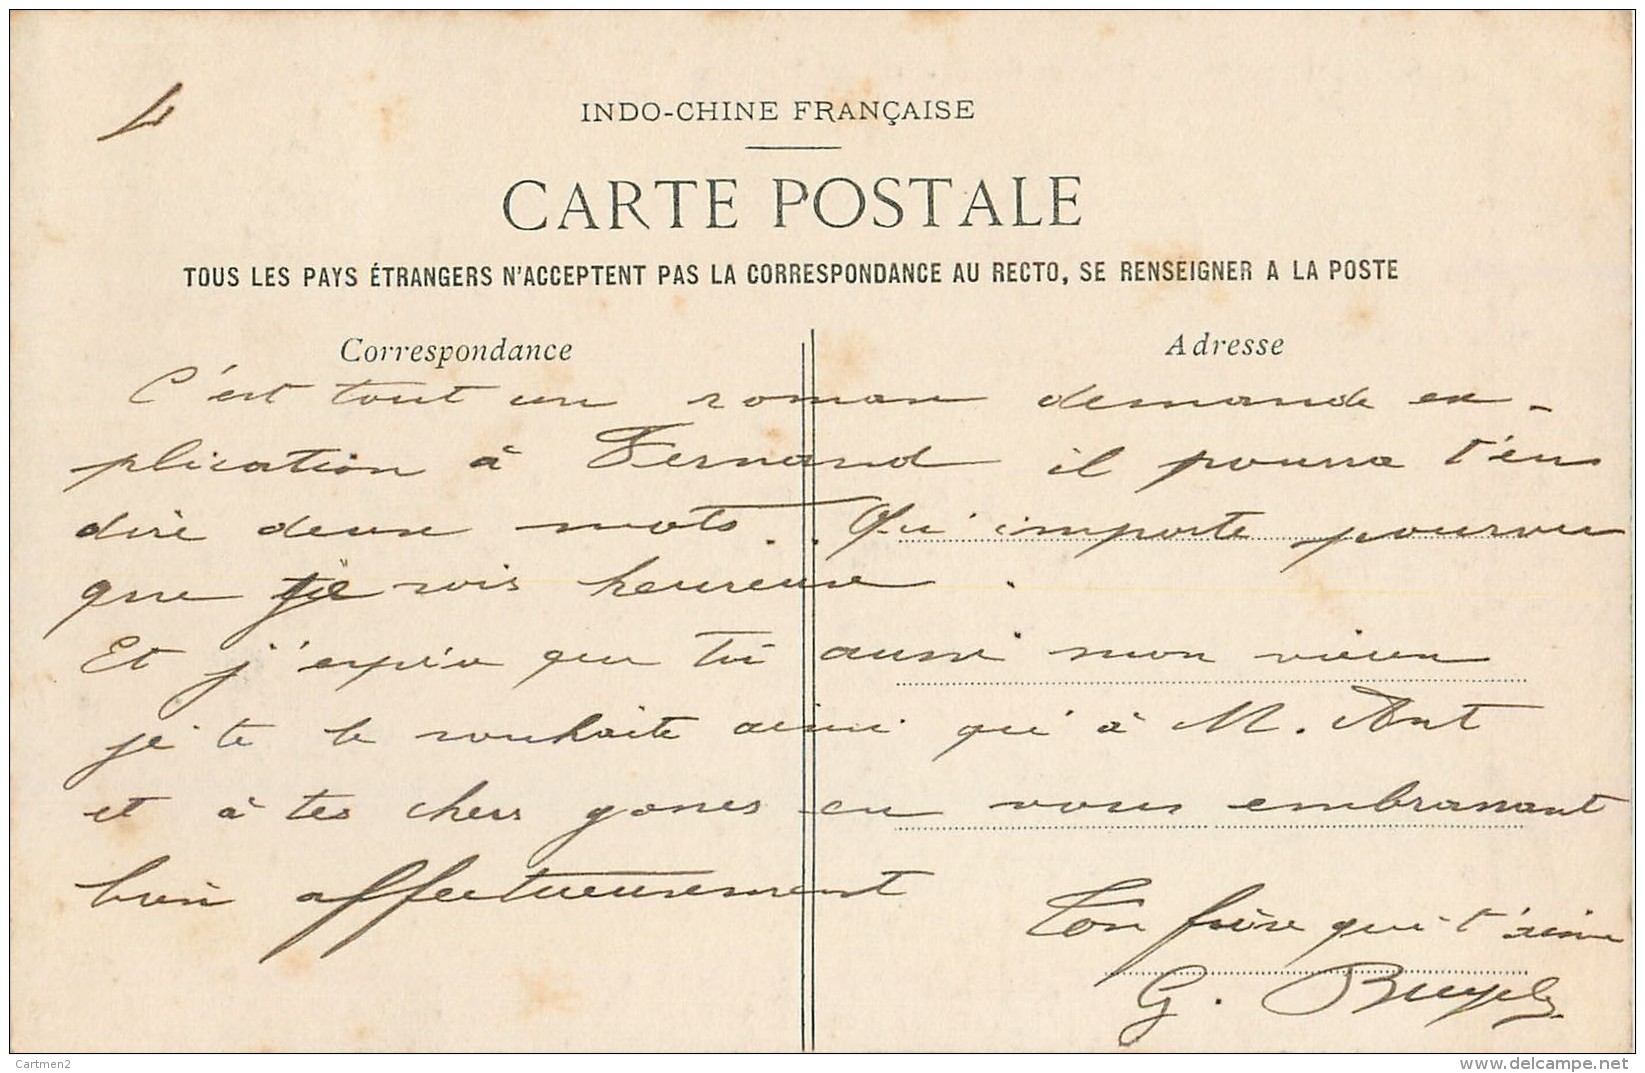 4
INDO-CHINE FRANÇAISE
CARTE POSTALE
TOUS LES PAYS ÉTRANGERS N'ACCEPTENT PAS LA CORRESPONDANCE AU RECTO, SE RENSEIGNER A LA POSTE
Correspondance
Adresse
C'est tout un roman demande ex-
plication à Fernand il pourra t'en
dire deux mots.. Qu'importe pourvu
que je sois heureuse.
Et j'espère que toi aussi mon vieux
je te le souhaite ainsi qu'à M. Ant
et à tes chers gones en vous embrassant
bien affectueusement
Ton frère qui t'aime
G.
Cartmen2
http://www.delcampe.net